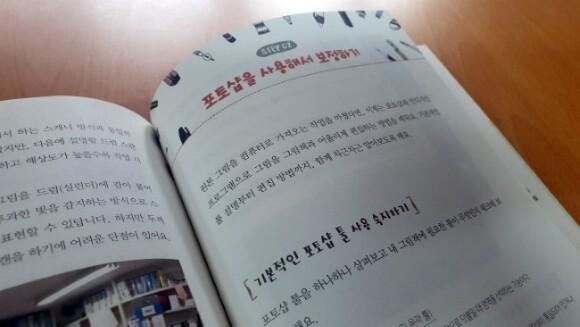 서 하는 스캐너 방식과 동일하
지만, 다음에 설명할 드럼 스캔
하고 해상도가 높을수록 작업 시
그림을 드럼(실린더)에 감아 붙여
투과한 빛을 감지하는 방식으로 스
표현할 수 있답니다. 하지만 두꺼
캔을 하기에 어려운 단점이 있어요.
STEP 02
포토샵을 사용해서 보정하기
원본 그림을 컴퓨터로 가져오는 작업을 마쳤다면, 이제는 포토샵과
프로그램으로 그림을 그림책과 어울리게 편집하는 방법을 배워요. 기본적인
툴 설명부터 편집 방법까지, 함께 차근차근 알아보도록 해요.
[기본적인 포토샵 툴 사용 숙지하기]
포토샵 툴을 하나하나 살펴보고 내 그림책에 필요한 툴이 무엇인지
해요.